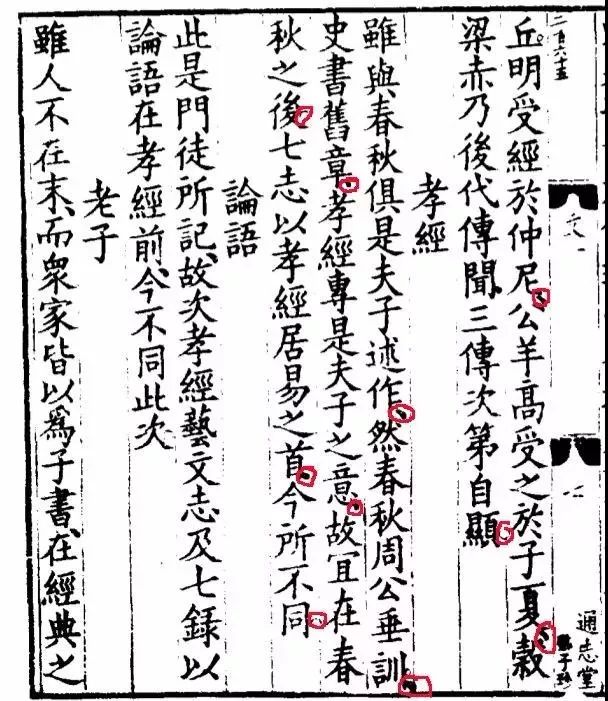 二百六十五
丘明受經於仲尼公羊髙受之於子夏穀
梁赤乃後代傳聞三傳次第自顯
孝經
雖與春秋俱是夫子述作然春秋周公垂訓
史書舊章孝經專是夫子之意故宜在春
秋之後七志以孝經居易之首今所不同
論語
此是門徒所記故次孝經藝文志及七録以
論語在孝經前今不同此次
老子
雖人不在末而衆家皆以爲子書在經典之
通志堂